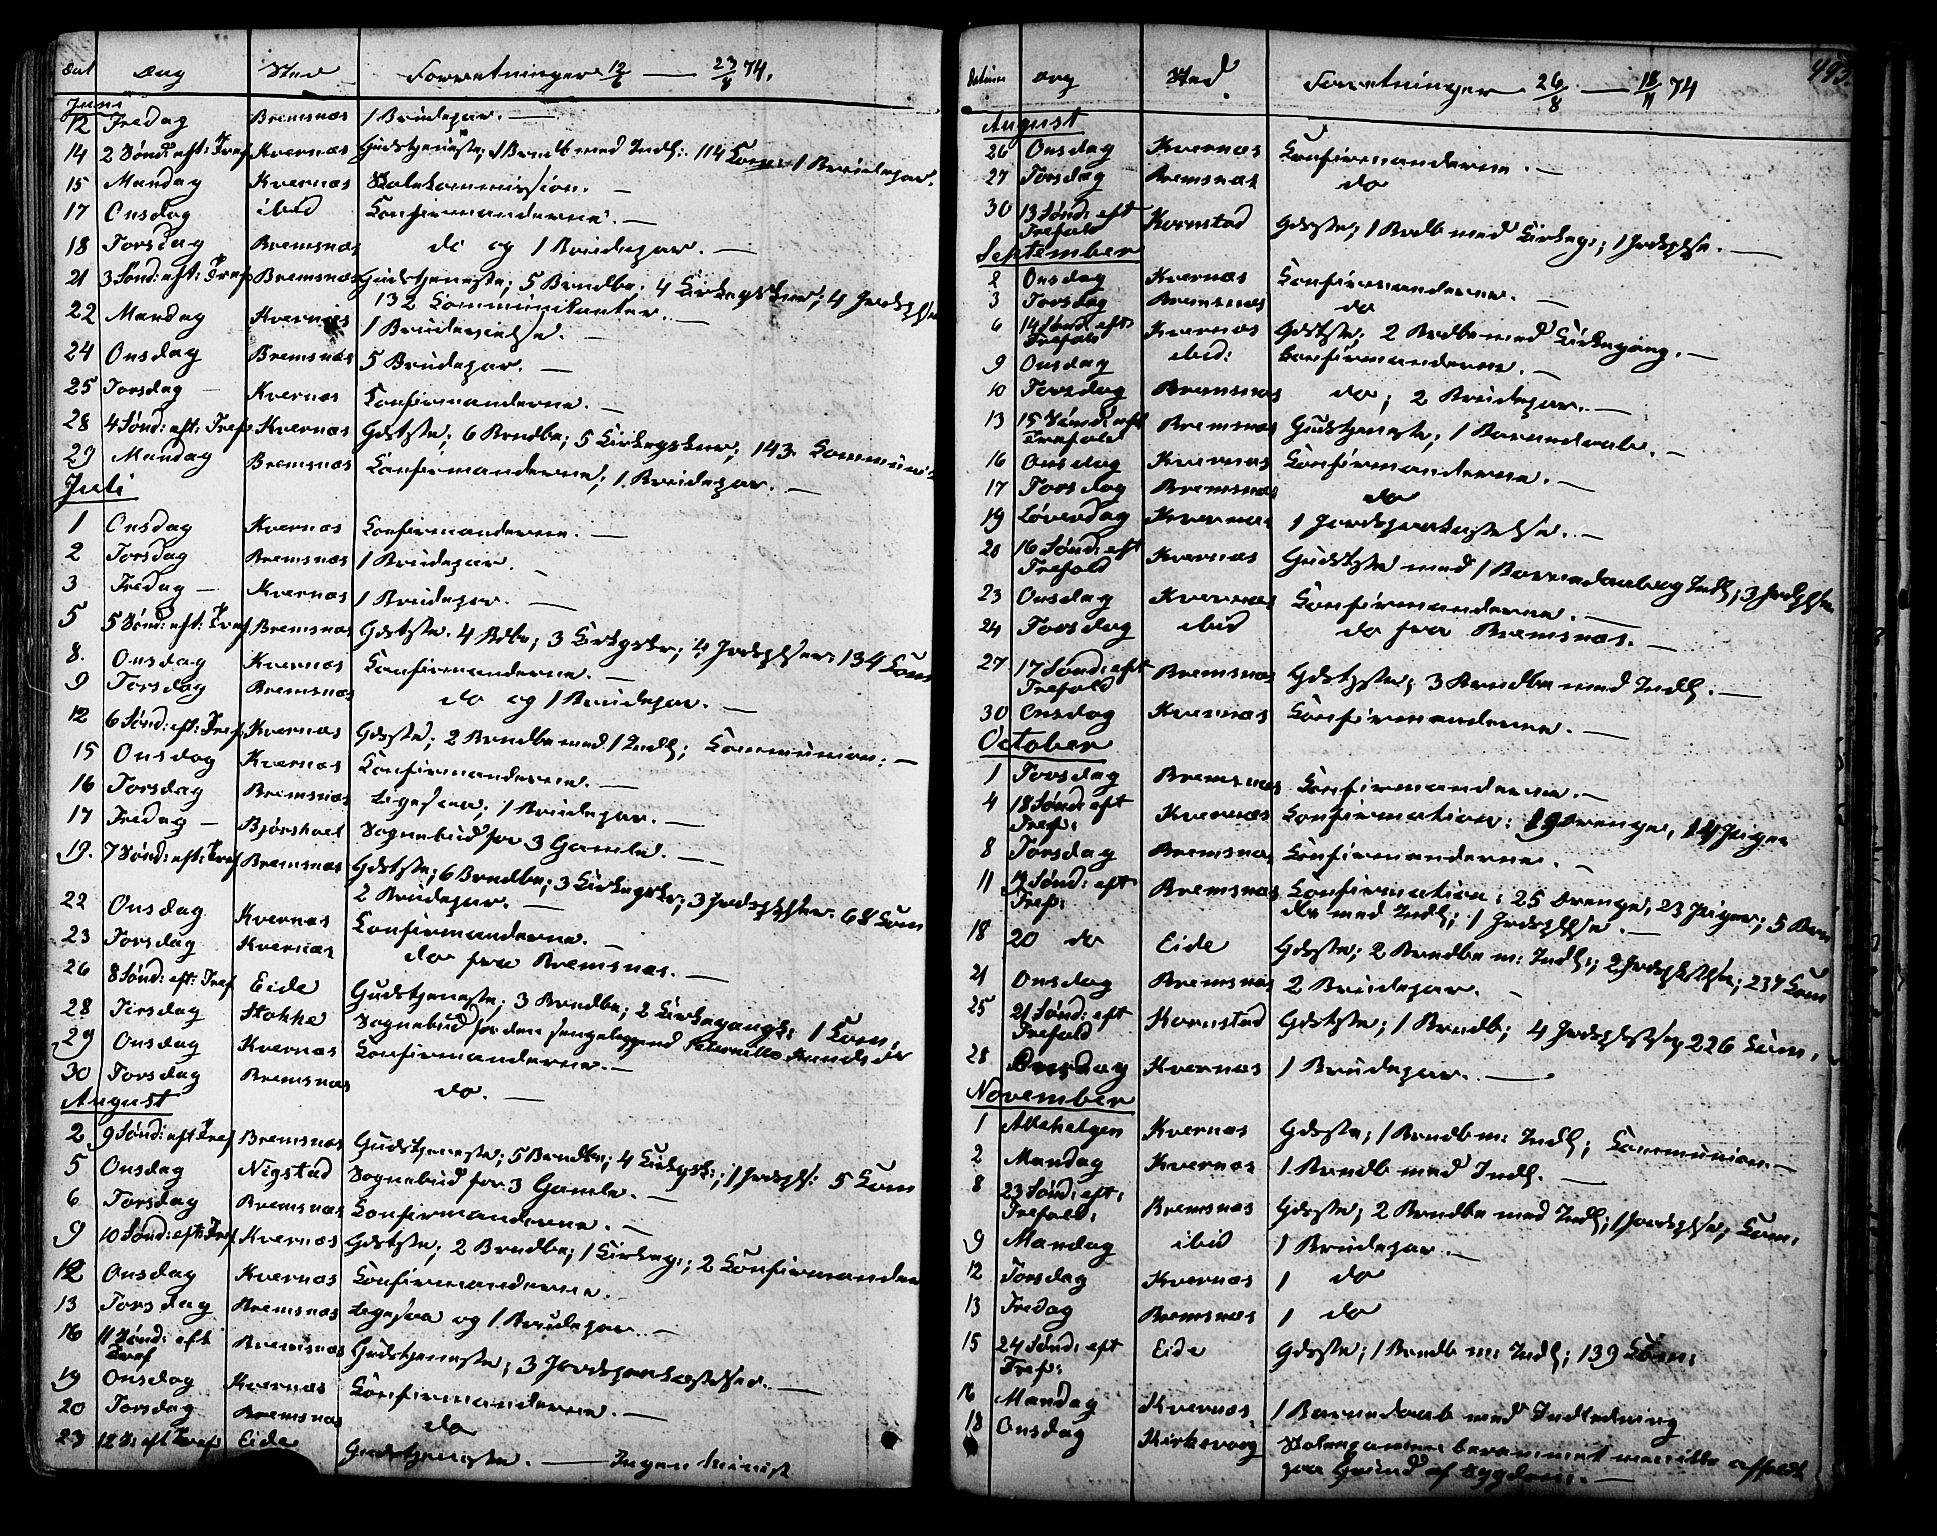 Dat Dag Sted Forretninger 12/6 — 23/8 74.
Juni
12 Fredag Bremsnæs 1 Brudepar. —
14 2 Sønd: eft: Tref Kvernæs Gudstjeneste; 1 Brndb med Indl: 114 Com: 1 Brudepar.
15 Mandag Kvernæs Skolekommission. —
17 Onsdag ibid Confirmanderne. —
18 Torsdag Bremsnæs do og 1 Brudepar. —
21 3 Sønd: eft: Tref Bremsnæs Gudstjeneste; 5 Brndbe. 4 Kirkegskner; 4 Jordsplse
132 Communikanter. —
22 Mandag Kvernæs 1 Brudevielse. —
24 Onsdag Bremsnæs 5 Brudepar. —
25 Torsdag — Kvernæs Confirmanderne. —
28 4 Sønd: eft: Tref Kvernæs Gdstste; 6 Brndbe; 5 Kirkegskner; 143 Communi=
29 Mandag Bremsnæs Confirmanderne; 1 Brudepar. —
Juli
1 Onsdag Kvernæs Confirmanderne. —
2 Torsdag Bremsnæs 1 Brudepar. —
3 Fredag — Kvernæs 1 Brudepar. —
5 5 Sønd: eft: Tref Bremsnæs Gdstste. 4 Bdbe; 3 Kirkgskr; 4 Jordsplser; 134 Com
8. Onsdag Kvernæs Confirmanderne. —
9 Torsdag Bremsnæs do og 1 Brudepar. —
12 6 Sønd: eft: Tref Kvernæs Gdsste; 2 Brndbe med 1 Indl; Communion: —
15 Onsdag Kvernæs Confirmanderne. —
16 Torsdag Bremsnæs Ligesaa; 1 Brudepar. —
17 Fredag — Bjørshoel Sognebud for 3 Gamle. —
19. 7 Sønd: eft: Tref Bremsnæs Gdstste; 6 Brndbe; 3 Kirkegskr; 3 Jordsplser. 68 Com
2 Brudepar. —
22 Onsdag Kvernæs Confirmanderne. —
23 Torsdag Kvernæs do fra Bremsnæs. —
26 8 Sønd: eft: Tref Eide Gudstjeneste; 3 Brndbe; 2 Kirkegangsk: 1 Com.
28 Tirsdag Stokke Sognebud for den sengeliggend Peternille
29 Onsdag Kvernæs Confirmanderne. —
30 Torsdag Bremsnæs do. —
August
2 9 Sønd: eft Tref Bremsnæs Gudstjeneste; 5 Brndbe; 4 Kirkgsk:; 1 Jordspls: 5 Com
5 Onsdag Nigstad Sognebud for 3 Gamle. —
6 Torsdag Bremsnæs Confirmanderne. —
9 10 Sønd: eft: Tref Kvernæs Gdstste; 2 Brndbe; 1 Kirkeg:; 2 Confirmander
12 Onsdag Kvernæs Confirmanderne. —
13 Torsdag Bremsnæs Ligesaa og 1 Brudepar. —
16 11 Sønd: eft Tref Bremsnæs Gudstjeneste; 3 Jordspaakastelser. —
19 Onsdag Kvernæs Confirmanderne. —
20 Torsdag Bremsnæs do
23 12 S: eft Tref Eide Gudstjeneste. — Ingen Minist
493.
Datum Dag Sted. Forretninger 26/8 — 18/11 74
August
26 Onsdag Kvernæs Confirmanderne. —
27 Torsdag Bremsnæs do
30 13 Sønd: eft Trefold Kornstad Gdsste; 1 Brdb med Kirkeg:; 1 Jordsplse. —
September
2 Onsdag Kvernæs Confirmanderne. —
3 Torsdag Bremsnæs do
6 14 Sønd: eft Trefold Kvernæs Gdstste; 2 Brdbe med Kirkegang. —
9 Onsdag ibid: Confirmanderne. —
10 Torsdag Bremsnæs do; 2 Brudepar. —
13 15 Sønd: eft Trefold Bremsnæs Gudstjeneste; 1 Barnedaab. —
16 Onsdag Kvernæs Confirmanderne. —
17 Torsdag Bremsnæs do
19 Løverdag Kvernæs 1 Jordspaakastelse. —
20 16 Sønd: eft Trefold Kvernæs Gudstste med 1 Barnedaab og Indl; 3 Jordsplser
23 Onsdag Kvernæs Confirmanderne. —
24 Torsdag ibid do fra Bremsnæs. —
27 17 Sønd: eft Trefold Bremsnæs Gdstste; 3 Brndbe med Indl. —
30 Onsdag Kvernæs Confirmanderne. —
October
1 Torsdag Bremsnæs Confirmanderne. —
4 18 Sønd: eft Tref: Kvernæs Confirmation: 19 Drenge, 14 Piger
8 Torsdag Bremsnæs Confirmanderne. —
11 19 Sønd: eft Tref: Bremsnæs Confirmation: 25 Drenge, 23 Piger; 5 Brn
dbe med Indl; 1 Jordsplse. —
18 20 do Eide Gdsste; 2 Brndbe m: Indl:; 2 Jordsplse; 237 Com
21 Onsdag Bremsnæs 2 Brudepar. —
25 21 Sønd: eft Trefold Kornstad Gdstste; 1 Brndb; 4 Jordsplser; 226 Com.
28 Onsdag Kvernæs 1 Brudepar. —
November
1 Allehelgen Kvernæs Gdsste; 1 Brndb m: Indl; Communion. —
2 Mandag Kvernæs 1 Brndb med Indl. —
8 23 Sønd: eft: Trefold: Bremsnæs Gdsste; 2 Brndbe med Indl; 1 Jordsplse; Com.
9 Mandag ibid 1 Brudepar. —
12 Torsdag Kvernæs 1 do
13 Fredag Bremsnæs 1 do
15 24 Sønd: eft Tref: Eide Gdsste; 1 Brndb m: Indl; 139 Com:
16 Mandag Kvernæs 1 Barnedaab med Indledning
18 Onsdag Kirkevaag Skoleexamen berammet men ikke afholdt
paa Grund af Sygdom. —